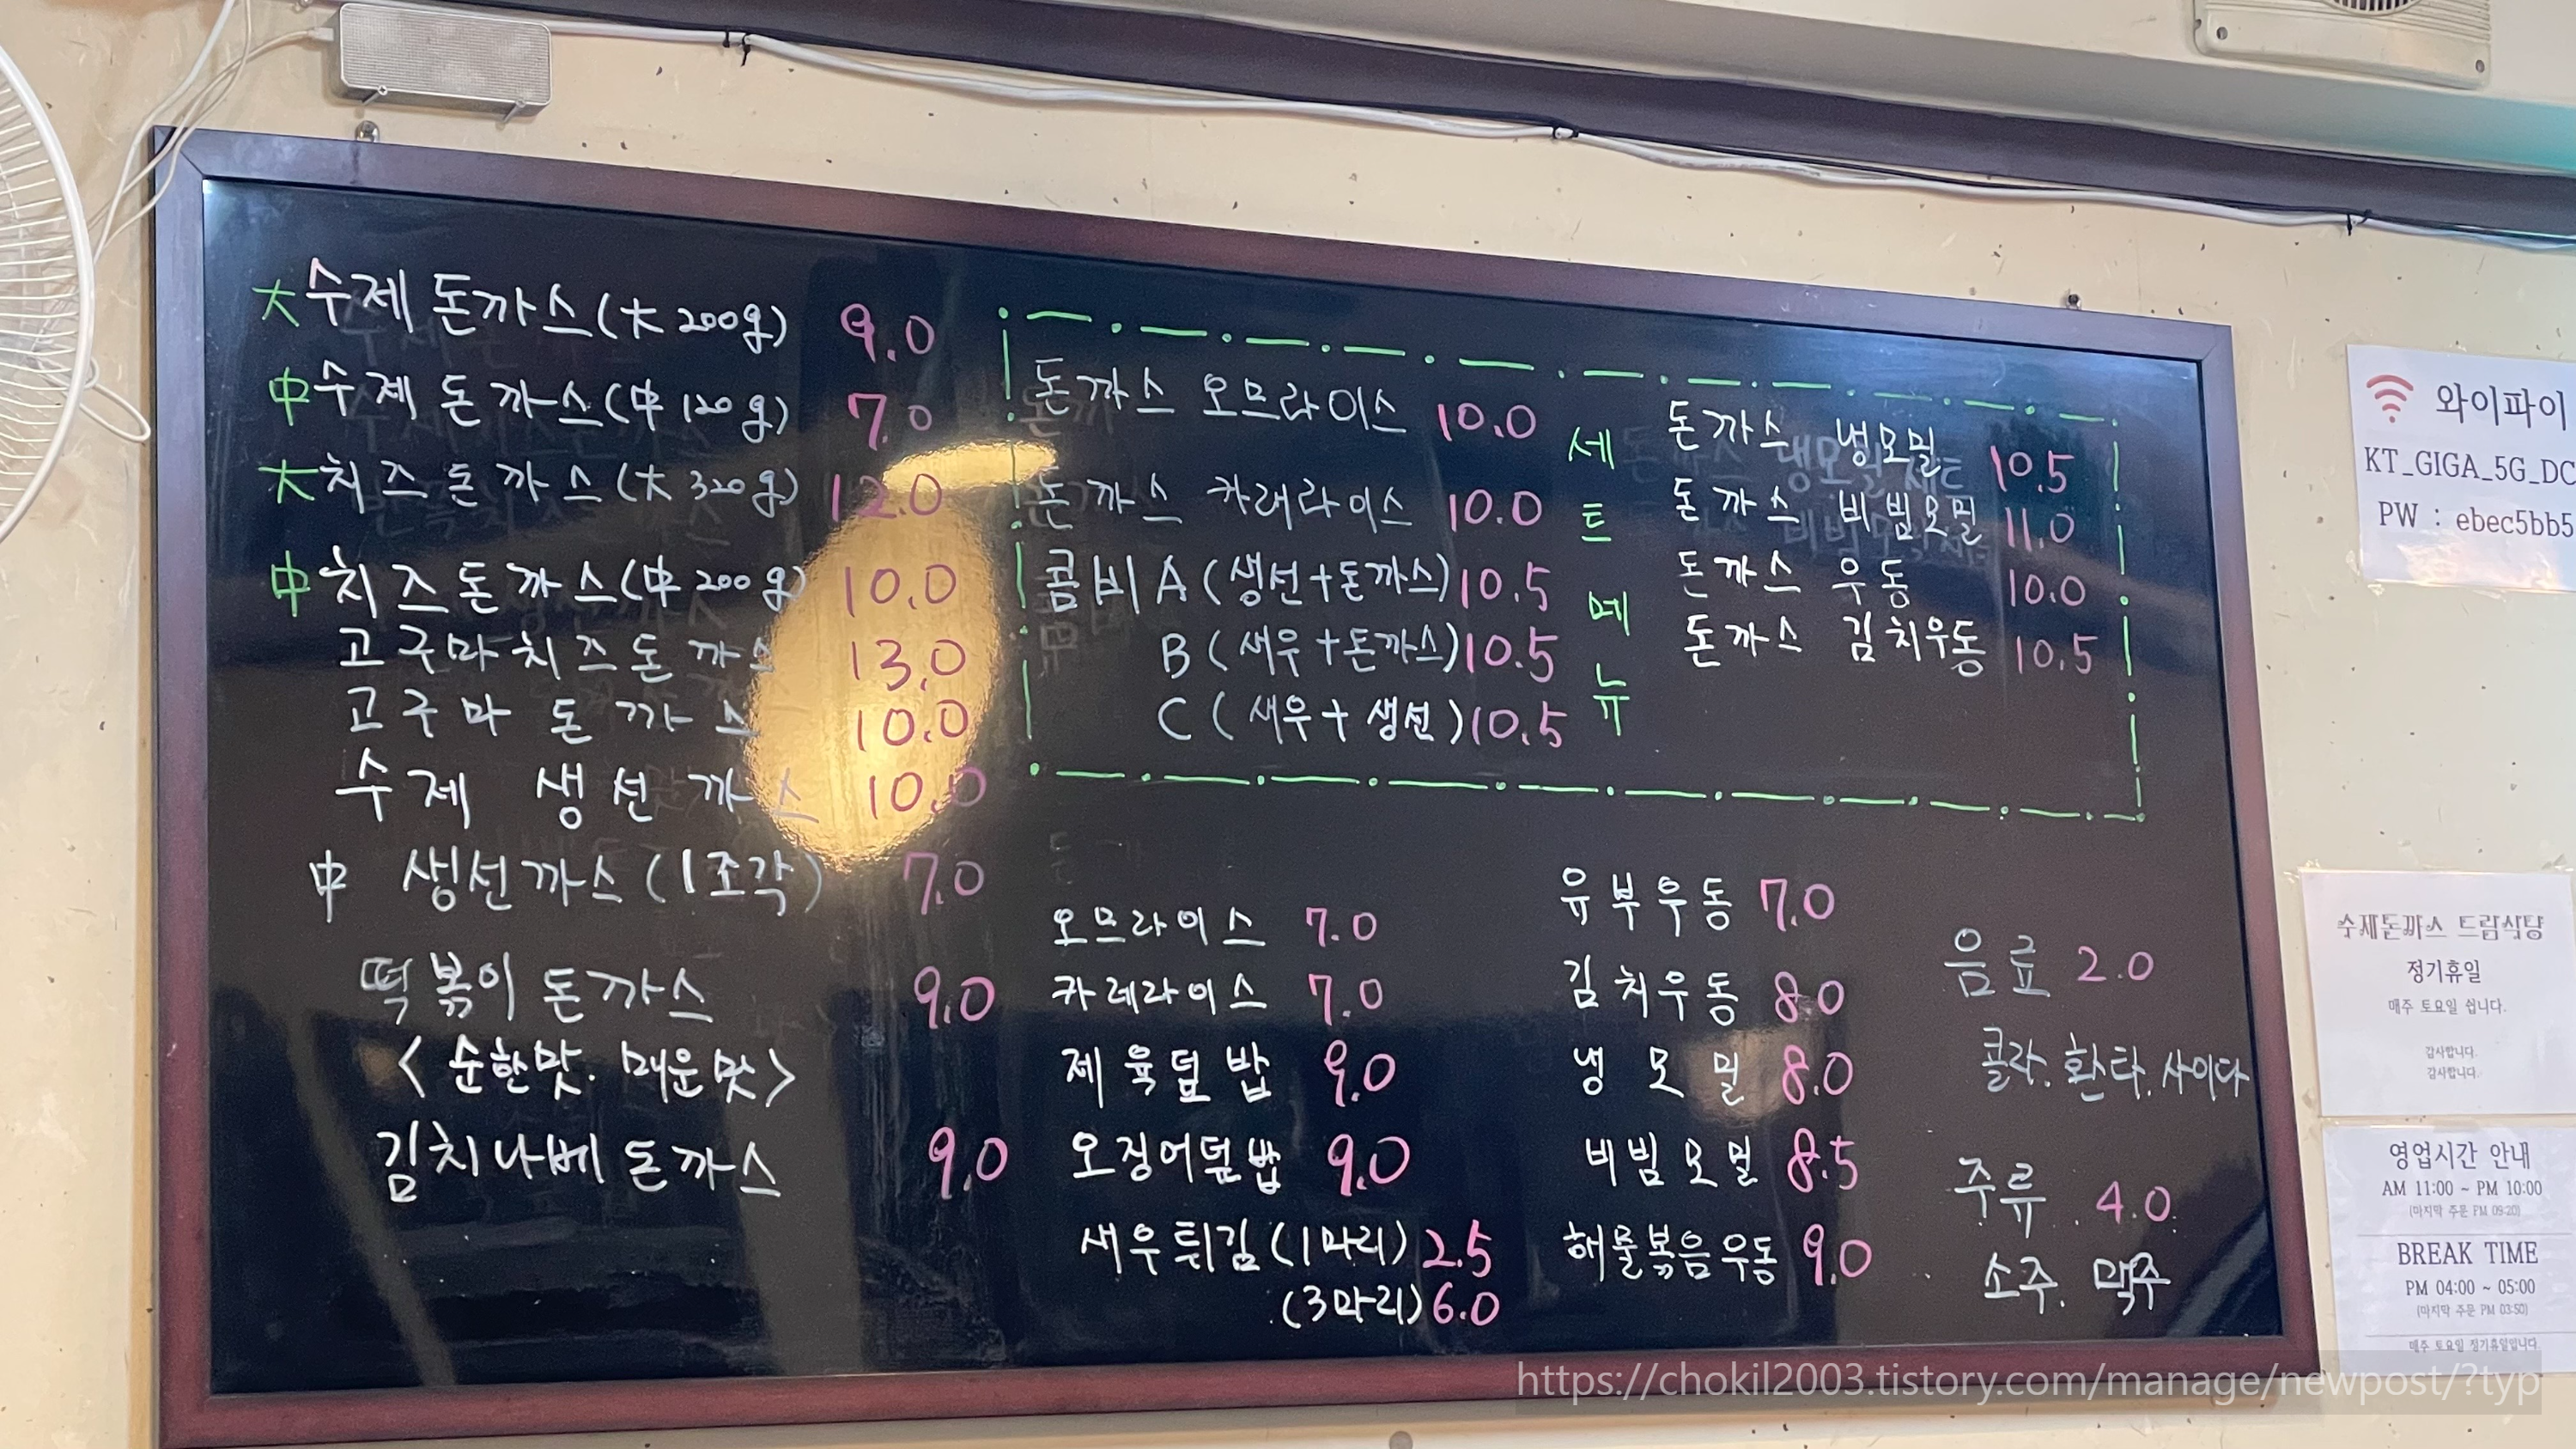 大 수제 돈까스(大 200g) 9.0
中 수제 돈까스(中 120g) 7.0
大 치즈 돈까스(大 320g) 12.0
中 치즈돈까스(中 200g) 10.0
고구마치즈돈까스 13.0
고구마 돈까스 10.0
수제 생선까스 10.0
中 생선까스(1조각) 7.0
떡볶이 돈까스 9.0
<순한맛. 매운맛>
김치나베 돈까스 9.0
돈까스 오므라이스 10.0
돈까스 카레라이스 10.0
콤비 A (생선+돈까스) 10.5
B (새우+돈까스) 10.5
C (새우+생선) 10.5
세트메뉴
돈까스 냉모밀 10.5
돈까스 비빔모밀 11.0
돈까스 우동 10.0
돈까스 김치우동 10.5
오므라이스 7.0
카레라이스 7.0
제육덮밥 9.0
오징어덮밥 9.0
새우튀김(1마리) 2.5
(3마리) 6.0
유부우동 7.0
김치우동 8.0
냉모밀 8.0
비빔모밀 8.5
해물볶음우동 9.0
음료 2.0
콜라. 환타. 사이다
주류 4.0
소주. 맥주
와이파이
KT_GIGA_5G_DC
PW : ebec5bb5
수제돈까스 드림식당
정기휴일
매주 토요일 쉽니다.
감사합니다.
감사합니다.
영업시간 안내
AM 11:00 ~ PM 10:00
(마지막 주문 PM 09:20)
BREAK TIME
PM 04:00 ~ 05:00
(마지막 주문 PM 03:50)
매주 토요일 정기휴일입니다
https://chokil2003.tistory.com/manage/newpost/?typ